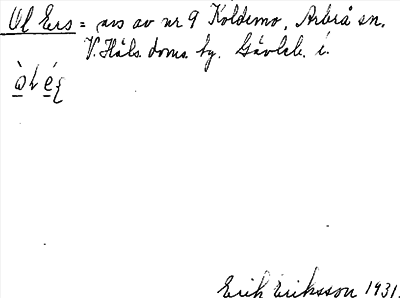 Ol Ers = ars av nr 9 Koldemo, Arbrå sn.
V. Häls. doms. hg. Gävleb. l.
Erik Eriksson 1931.